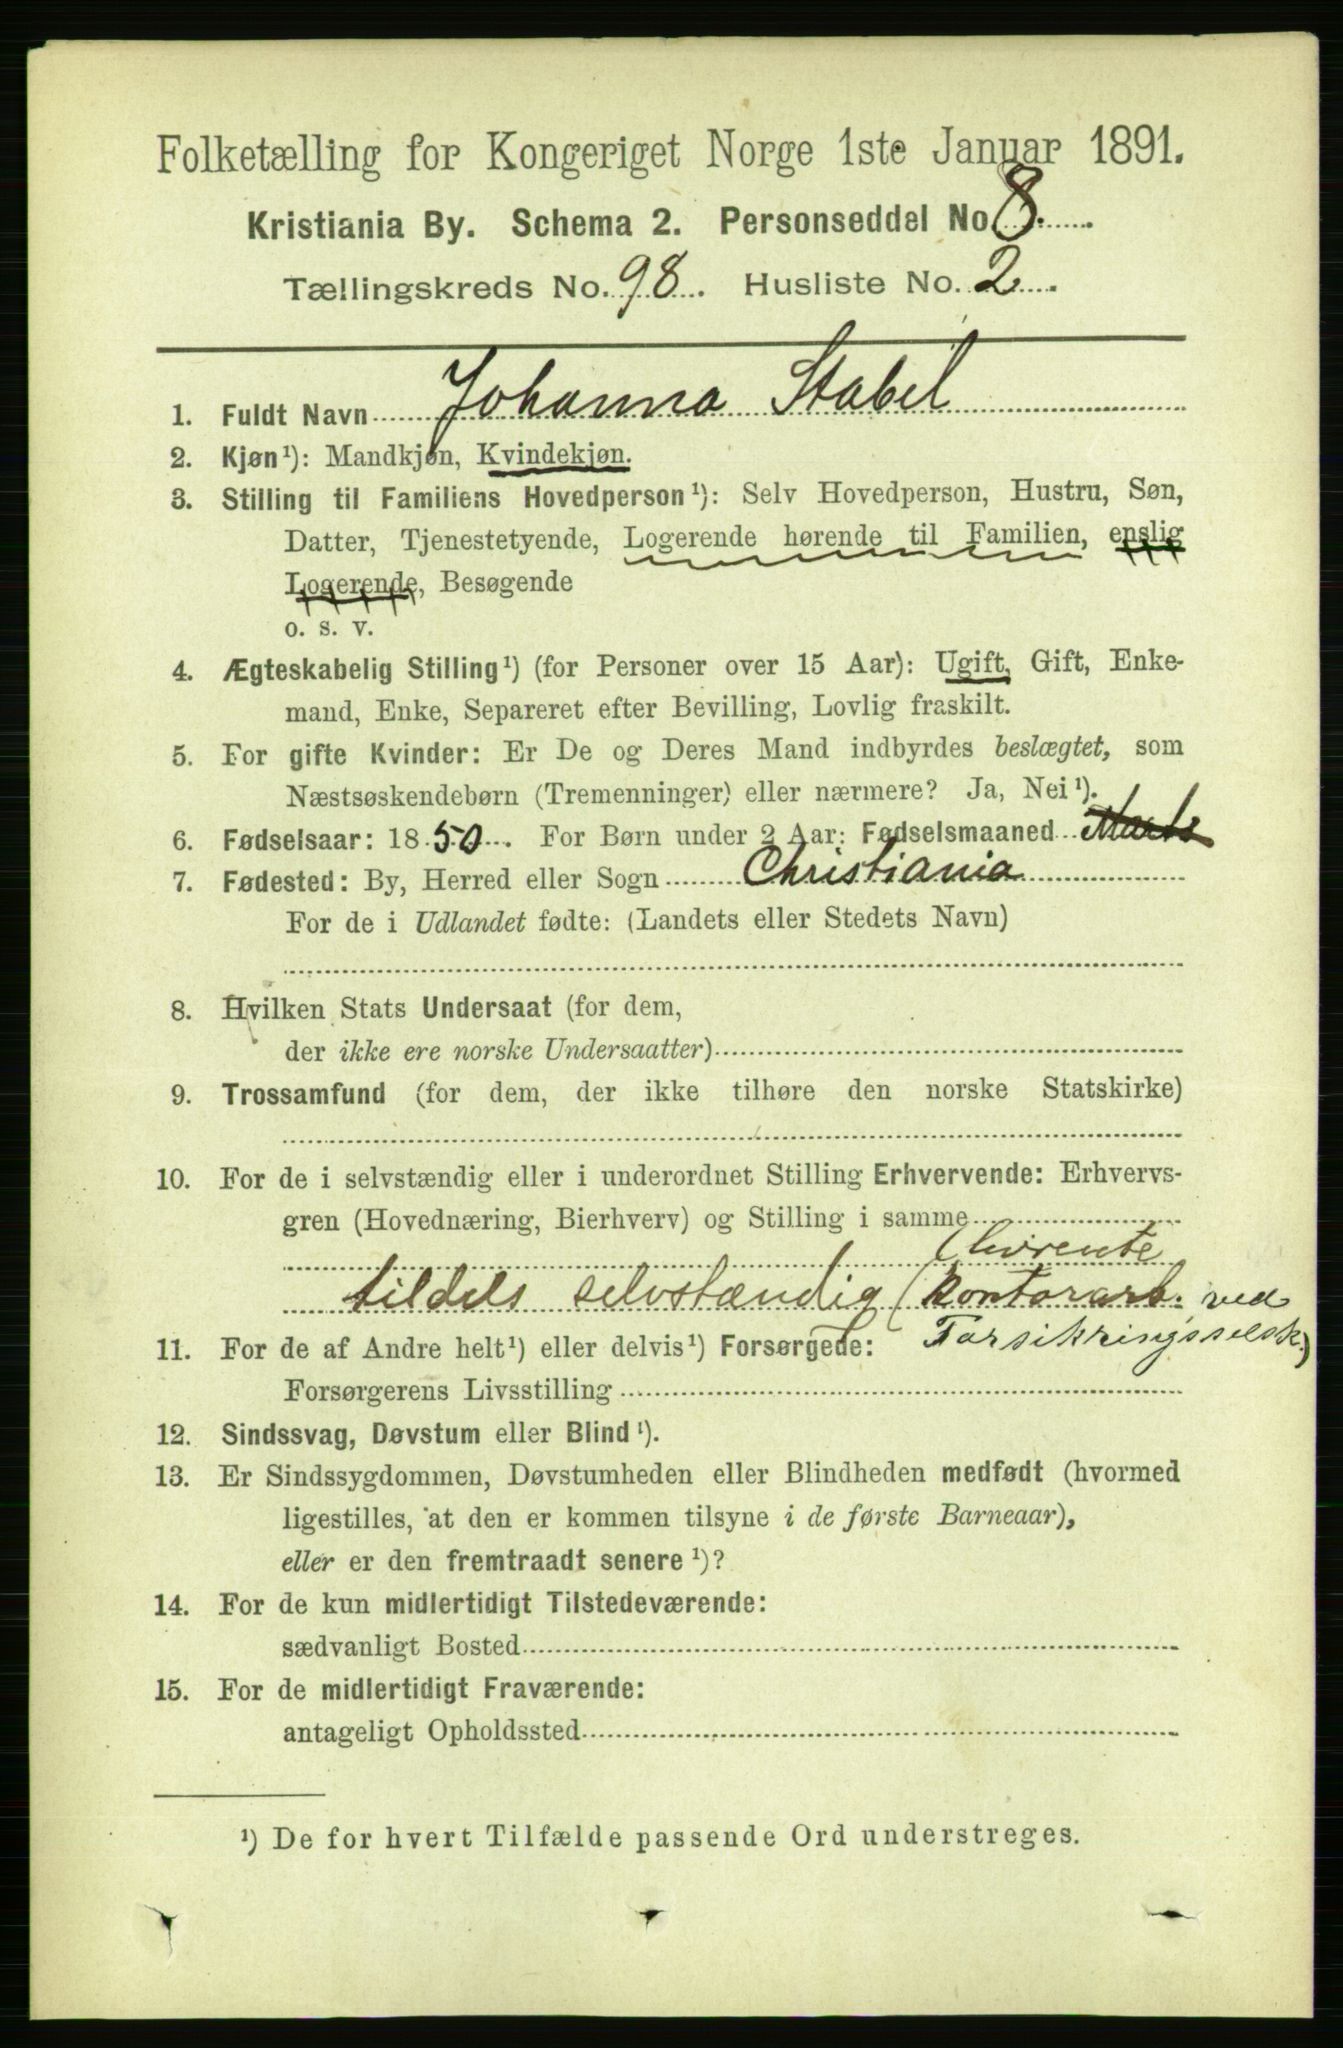 Folketælling for Kongeriget Norge 1ste Januar 1891.
Kristiania By. Schema 2. Personseddel No 8.
Tællingskreds No. 98. Husliste No. 2.
1. Fuldt Navn Johanna Stabel
2. Kjøn¹): Mandkjøn, Kvindekjøn.
3. Stilling til Familiens Hovedperson¹): Selv Hovedperson, Hustru, Søn,
Datter, Tjenestetyende, Logerende hørende til Familien, enslig
Logerende, Besøgende
o. s. v.
4. Ægteskabelig Stilling¹) (for Personer over 15 Aar): Ugift, Gift, Enke-
mand, Enke, Separeret efter Bevilling, Lovlig fraskilt.
5. For gifte Kvinder: Er De og Deres Mand indbyrdes beslægtet, som
Næstsøskendebørn (Tremenninger) eller nærmere? Ja, Nei¹).
6. Fødselsaar: 1850. For Børn under 2 Aar: Fødselsmaaned Marts
7. Fødested: By, Herred eller Sogn Christiania
For de i Udlandet fødte: (Landets eller Stedets Navn)
8. Hvilken Stats Undersaat (for dem,
der ikke ere norske Undersaatter)
9. Trossamfund (for dem, der ikke tilhøre den norske Statskirke)
10. For de i selvstændig eller i underordnet Stilling Erhvervende: Erhvervs-
gren (Hovednæring, Bierhverv) og Stilling i samme
(livrente
tildels selvstændig (kontorarb. ved
Forsikringsselsk.)
11. For de af Andre helt¹) eller delvis¹) Forsørgede:
Forsørgerens Livsstilling
12. Sindssvag, Døvstum eller Blind¹).
13. Er Sindssygdommen, Døvstumheden eller Blindheden medfødt (hvormed
ligestilles, at den er kommen tilsyne i de første Barneaar),
eller er den fremtraadt senere¹)?
14. For de kun midlertidigt Tilstedeværende:
sædvanligt Bosted
15. For de midlertidigt Fraværende:
antageligt Opholdssted
¹) De for hvert Tilfælde passende Ord understreges.